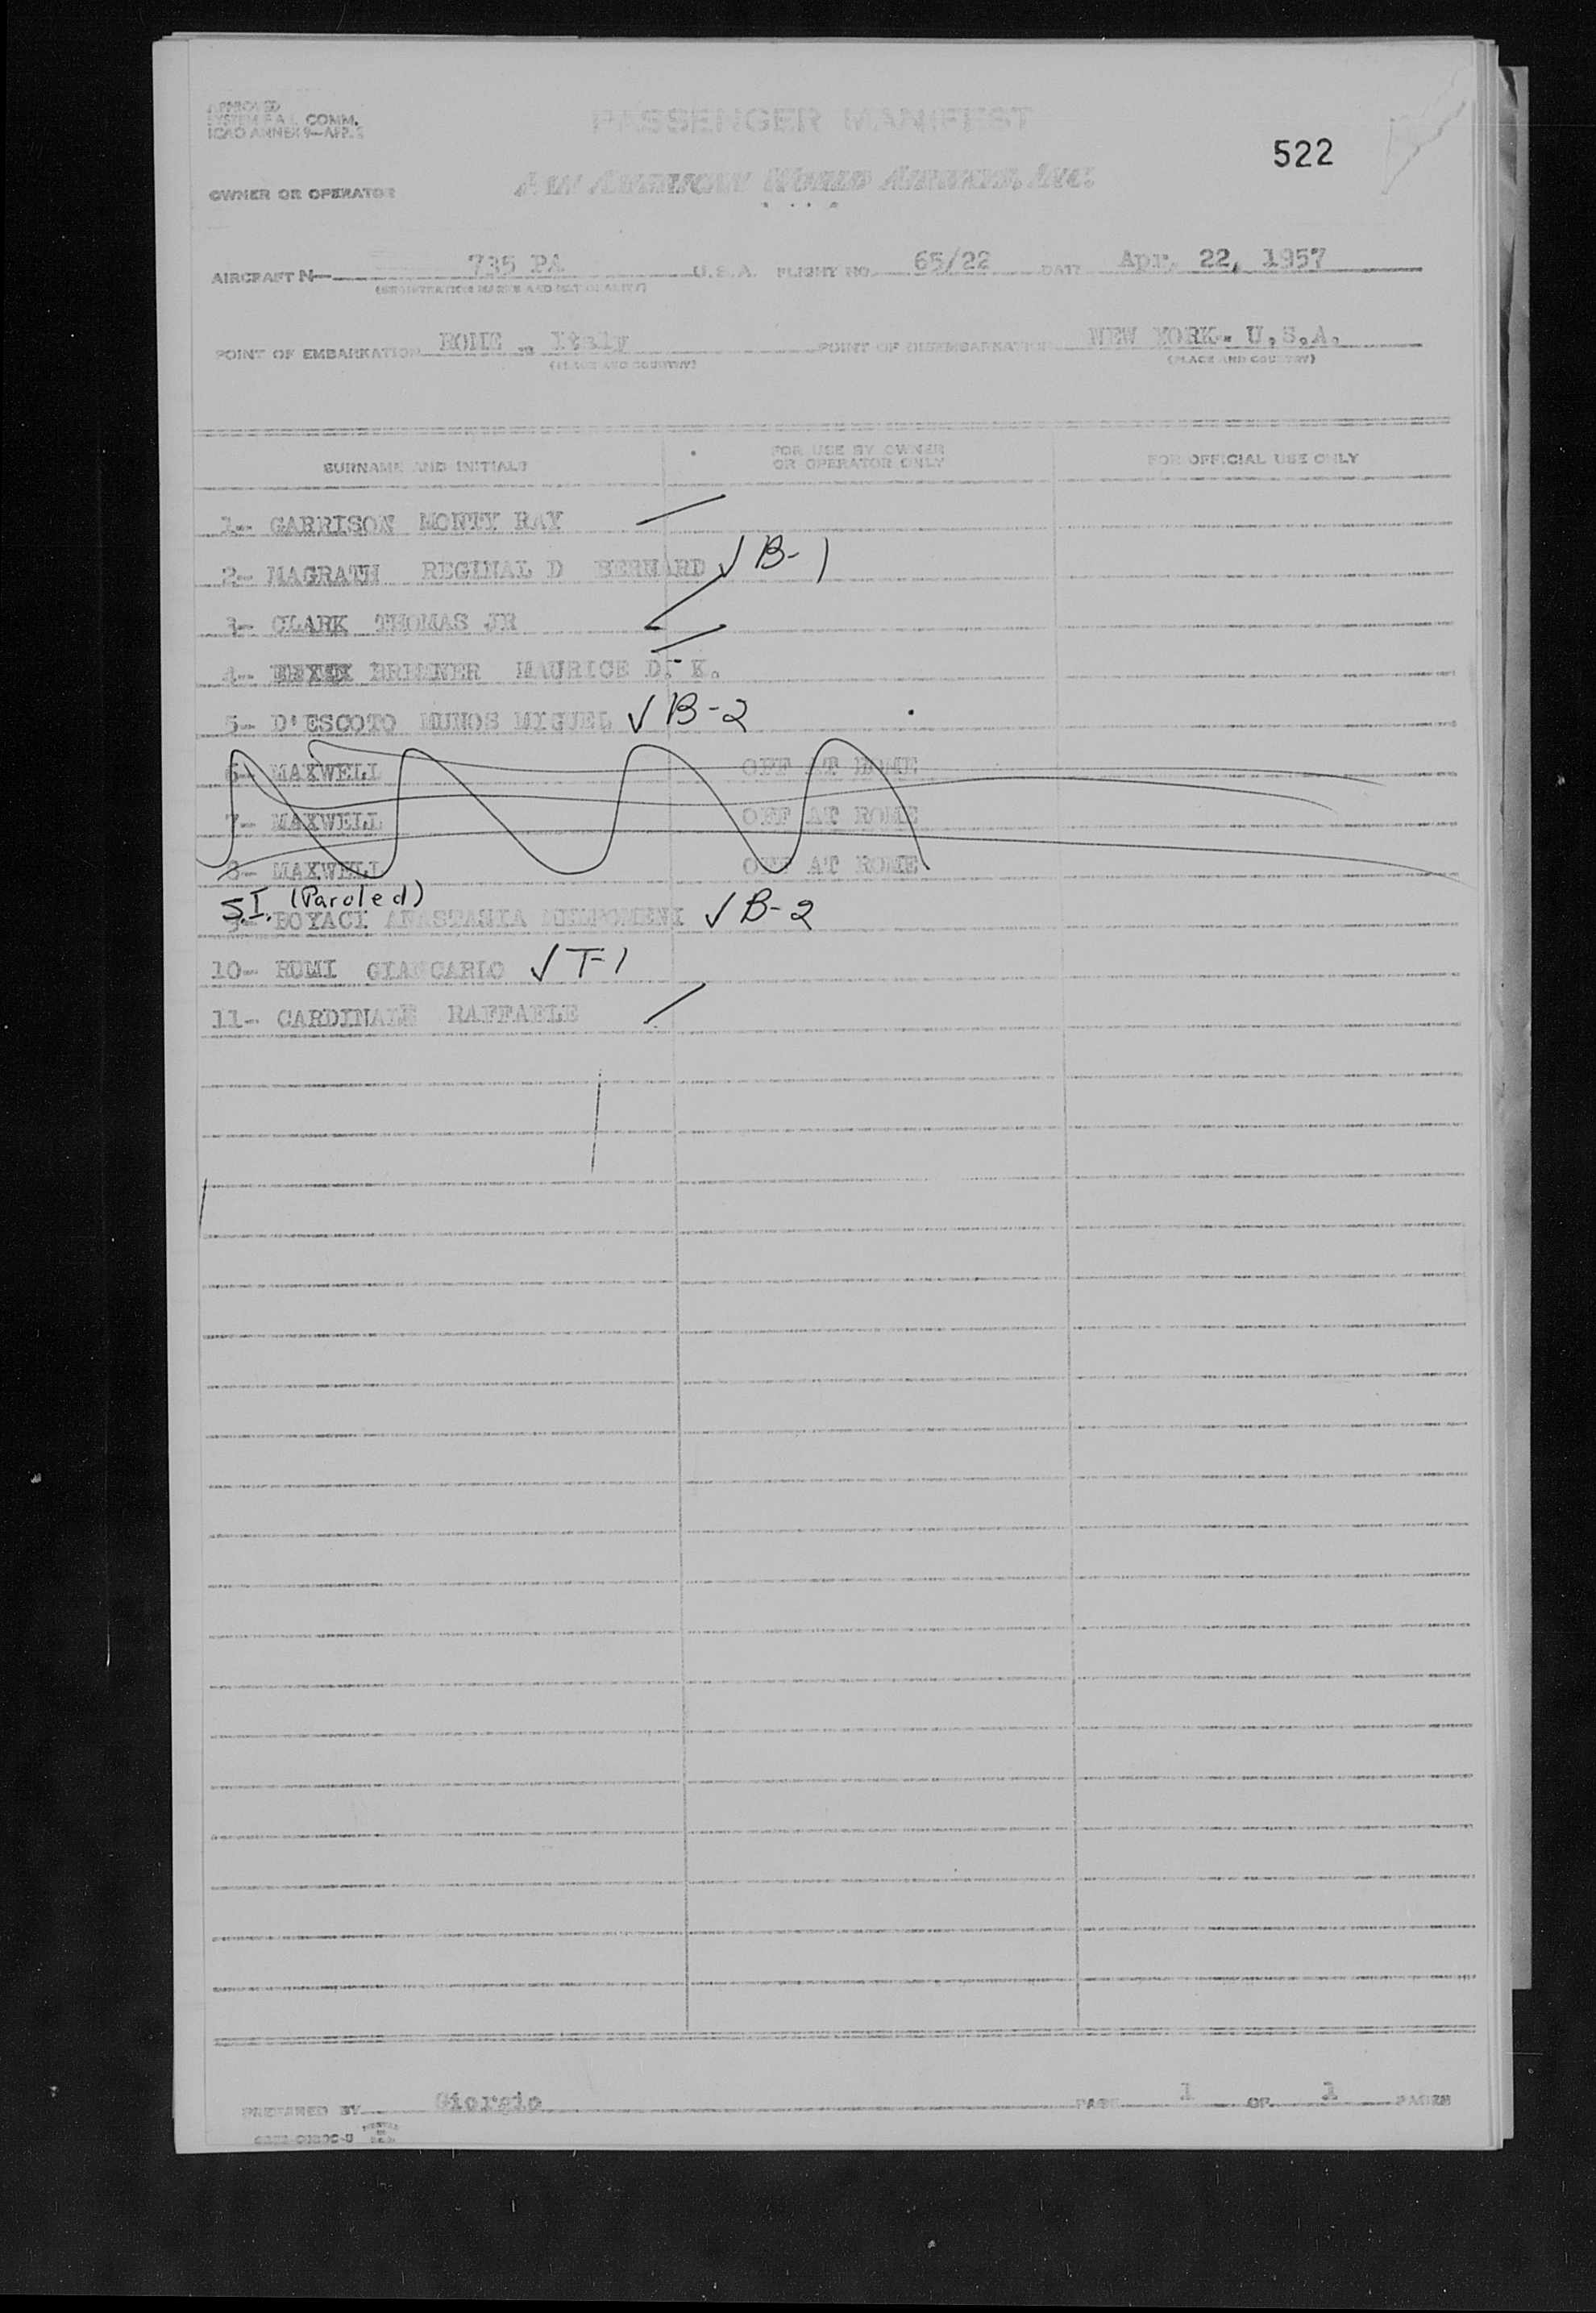 APPROVED
SYSTEM F.A.L. COMM.
ICAO ANNEX 9—APP. 2
PASSENGER MANIFEST
522
OWNER OR OPERATOR
PAN AMERICAN WORLD AIRWAYS, INC.
AIRCRAFT N— 735 PA U.S.A. FLIGHT NO. 65/22 DATE Apr. 22, 1957
(REGISTRATION MARKS AND NATIONALITY)
POINT OF EMBARKATION ROME - Italy POINT OF DISEMBARKATION NEW YORK- U.S.A.
(PLACE AND COUNTRY) (PLACE AND COUNTRY)
SURNAME AND INITIALS FOR USE BY OWNER OR OPERATOR ONLY FOR OFFICIAL USE ONLY
1- GARRISON MONTY RAY
2- MAGRATH REGINAL D BERNARD √ B-1
3- CLARK THOMAS JR
4- BREMNER MAURICE D. K.
5- D'ESCOTO MUNOS MIGUEL √ B-2
6- MAXWELL OFF AT ROME
7- MAXWELL OFF AT ROME
8- MAXWELL OFF AT ROME
S.I. (Paroled)
9- BOYACI ANASTASIA MELPOMENI √ B-2
10- ROMI GIANCARLO √ T-1
11- CARDINALE RAFFAELE
PREPARED BY Giorgio PAGE 1 OF 1 PAGES